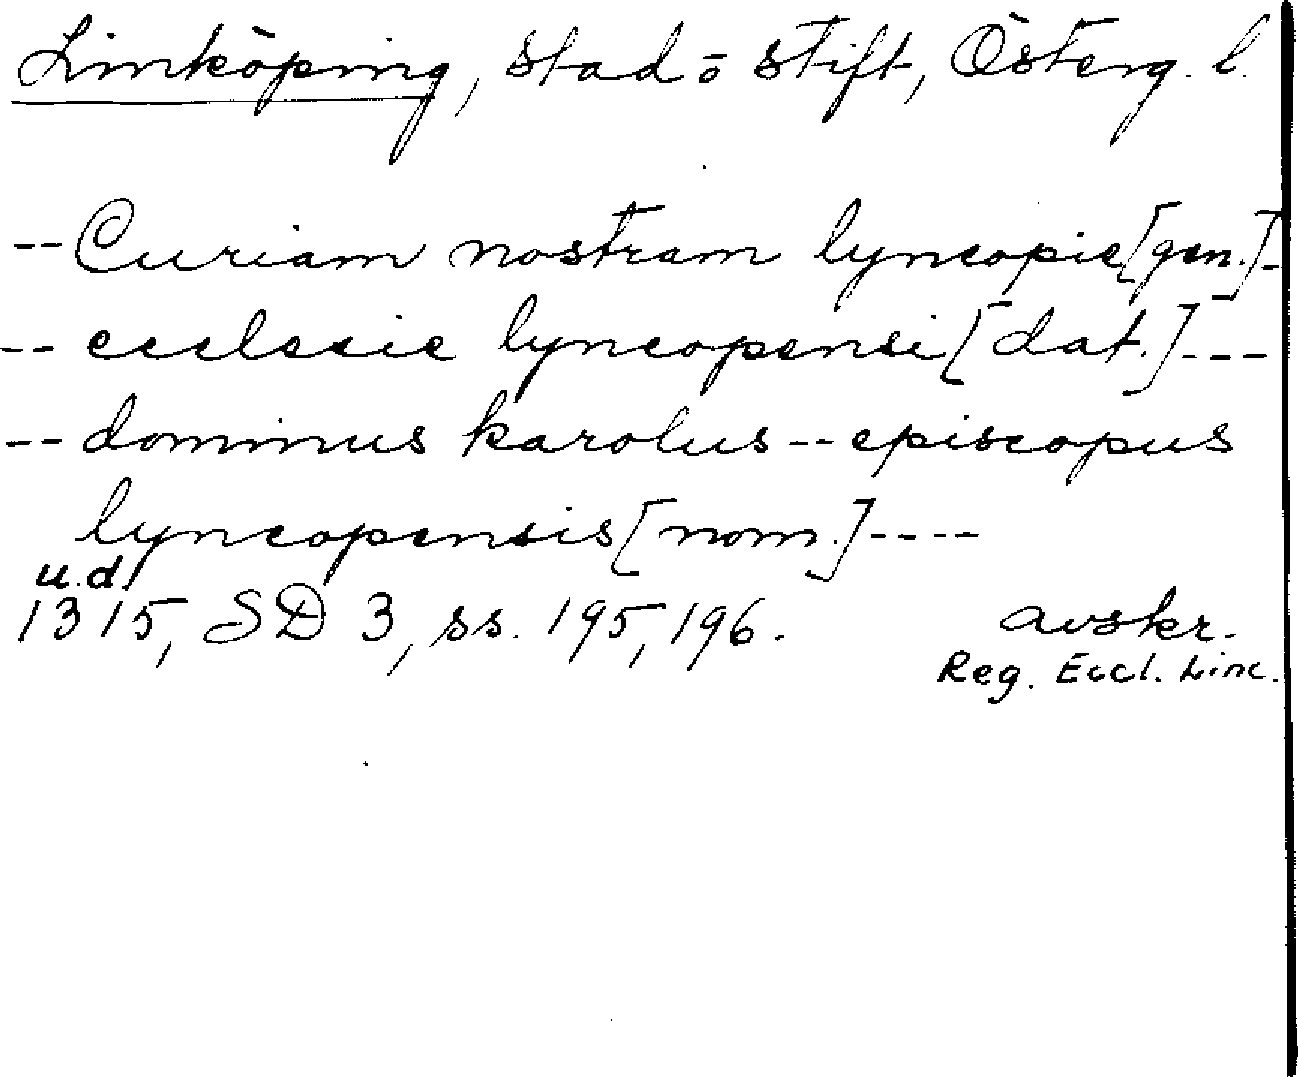 Linköping, stad o stift, Österg. l.
-- Curiam nostram lyncopie [gen.] -
-- ecclesie lyncopensi [dat.] ---
-- dominus karolus -- episcopus
lyncopensis [nom.] ----
u.d.
1315, SD 3, ss. 195, 196. avskr.
Reg. Eccl. Linc.